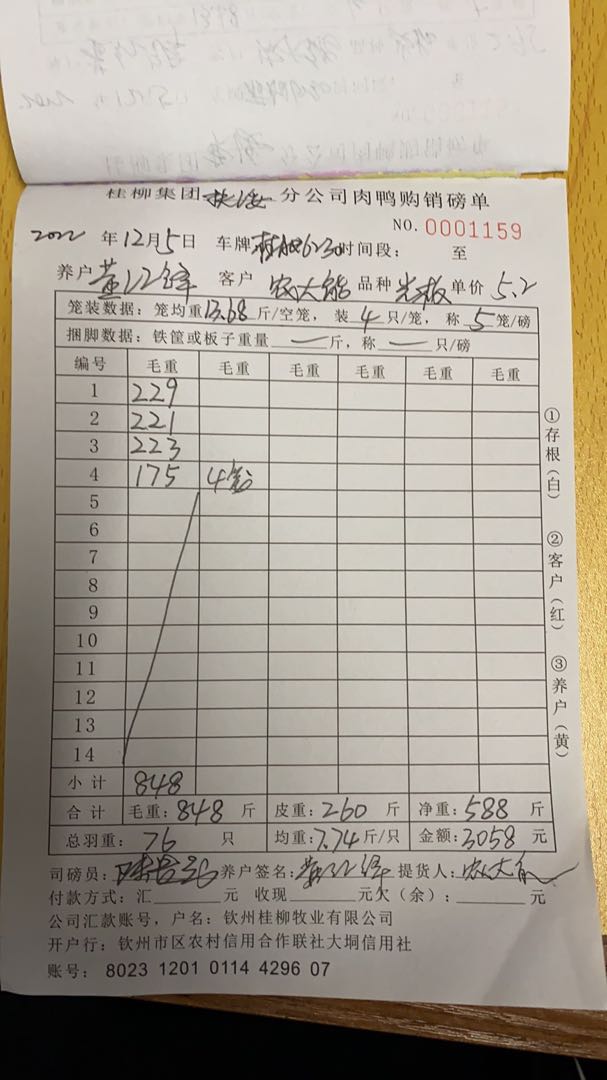 桂柳集团 分公司肉鸭购销磅单
NO. 0001159
2022 年 12 月 5 日 车牌 桂 6230 时间段: 至
养户 黄江锋 客户 农大能 品种 光板 单价 5.2
笼装数据: 笼均重 13.68 斤/空笼, 装 4 只/笼, 称 5 笼/磅
捆脚数据: 铁筐或板子重量 — 斤, 称 — 只/磅
编号 毛重 毛重 毛重 毛重 毛重 毛重
1 229
2 221
3 223
4 175 4笼
5
6
7
8
9
10
11
12
13
14
小计 848
合计 毛重: 848 斤 皮重: 260 斤 净重: 588 斤
总羽重: 76 只 均重: 7.74 斤/只 金额: 3058 元
司磅员: 养户签名: 黄江锋 提货人: 农大能
付款方式: 汇 元 收现 元欠(余): 元
公司汇款账号, 户名: 钦州桂柳牧业有限公司
开户行: 钦州市区农村信用合作联社大垌信用社
账号: 8023 1201 0114 4296 07
①存根(白)
②客户(红)
③养户(黄)